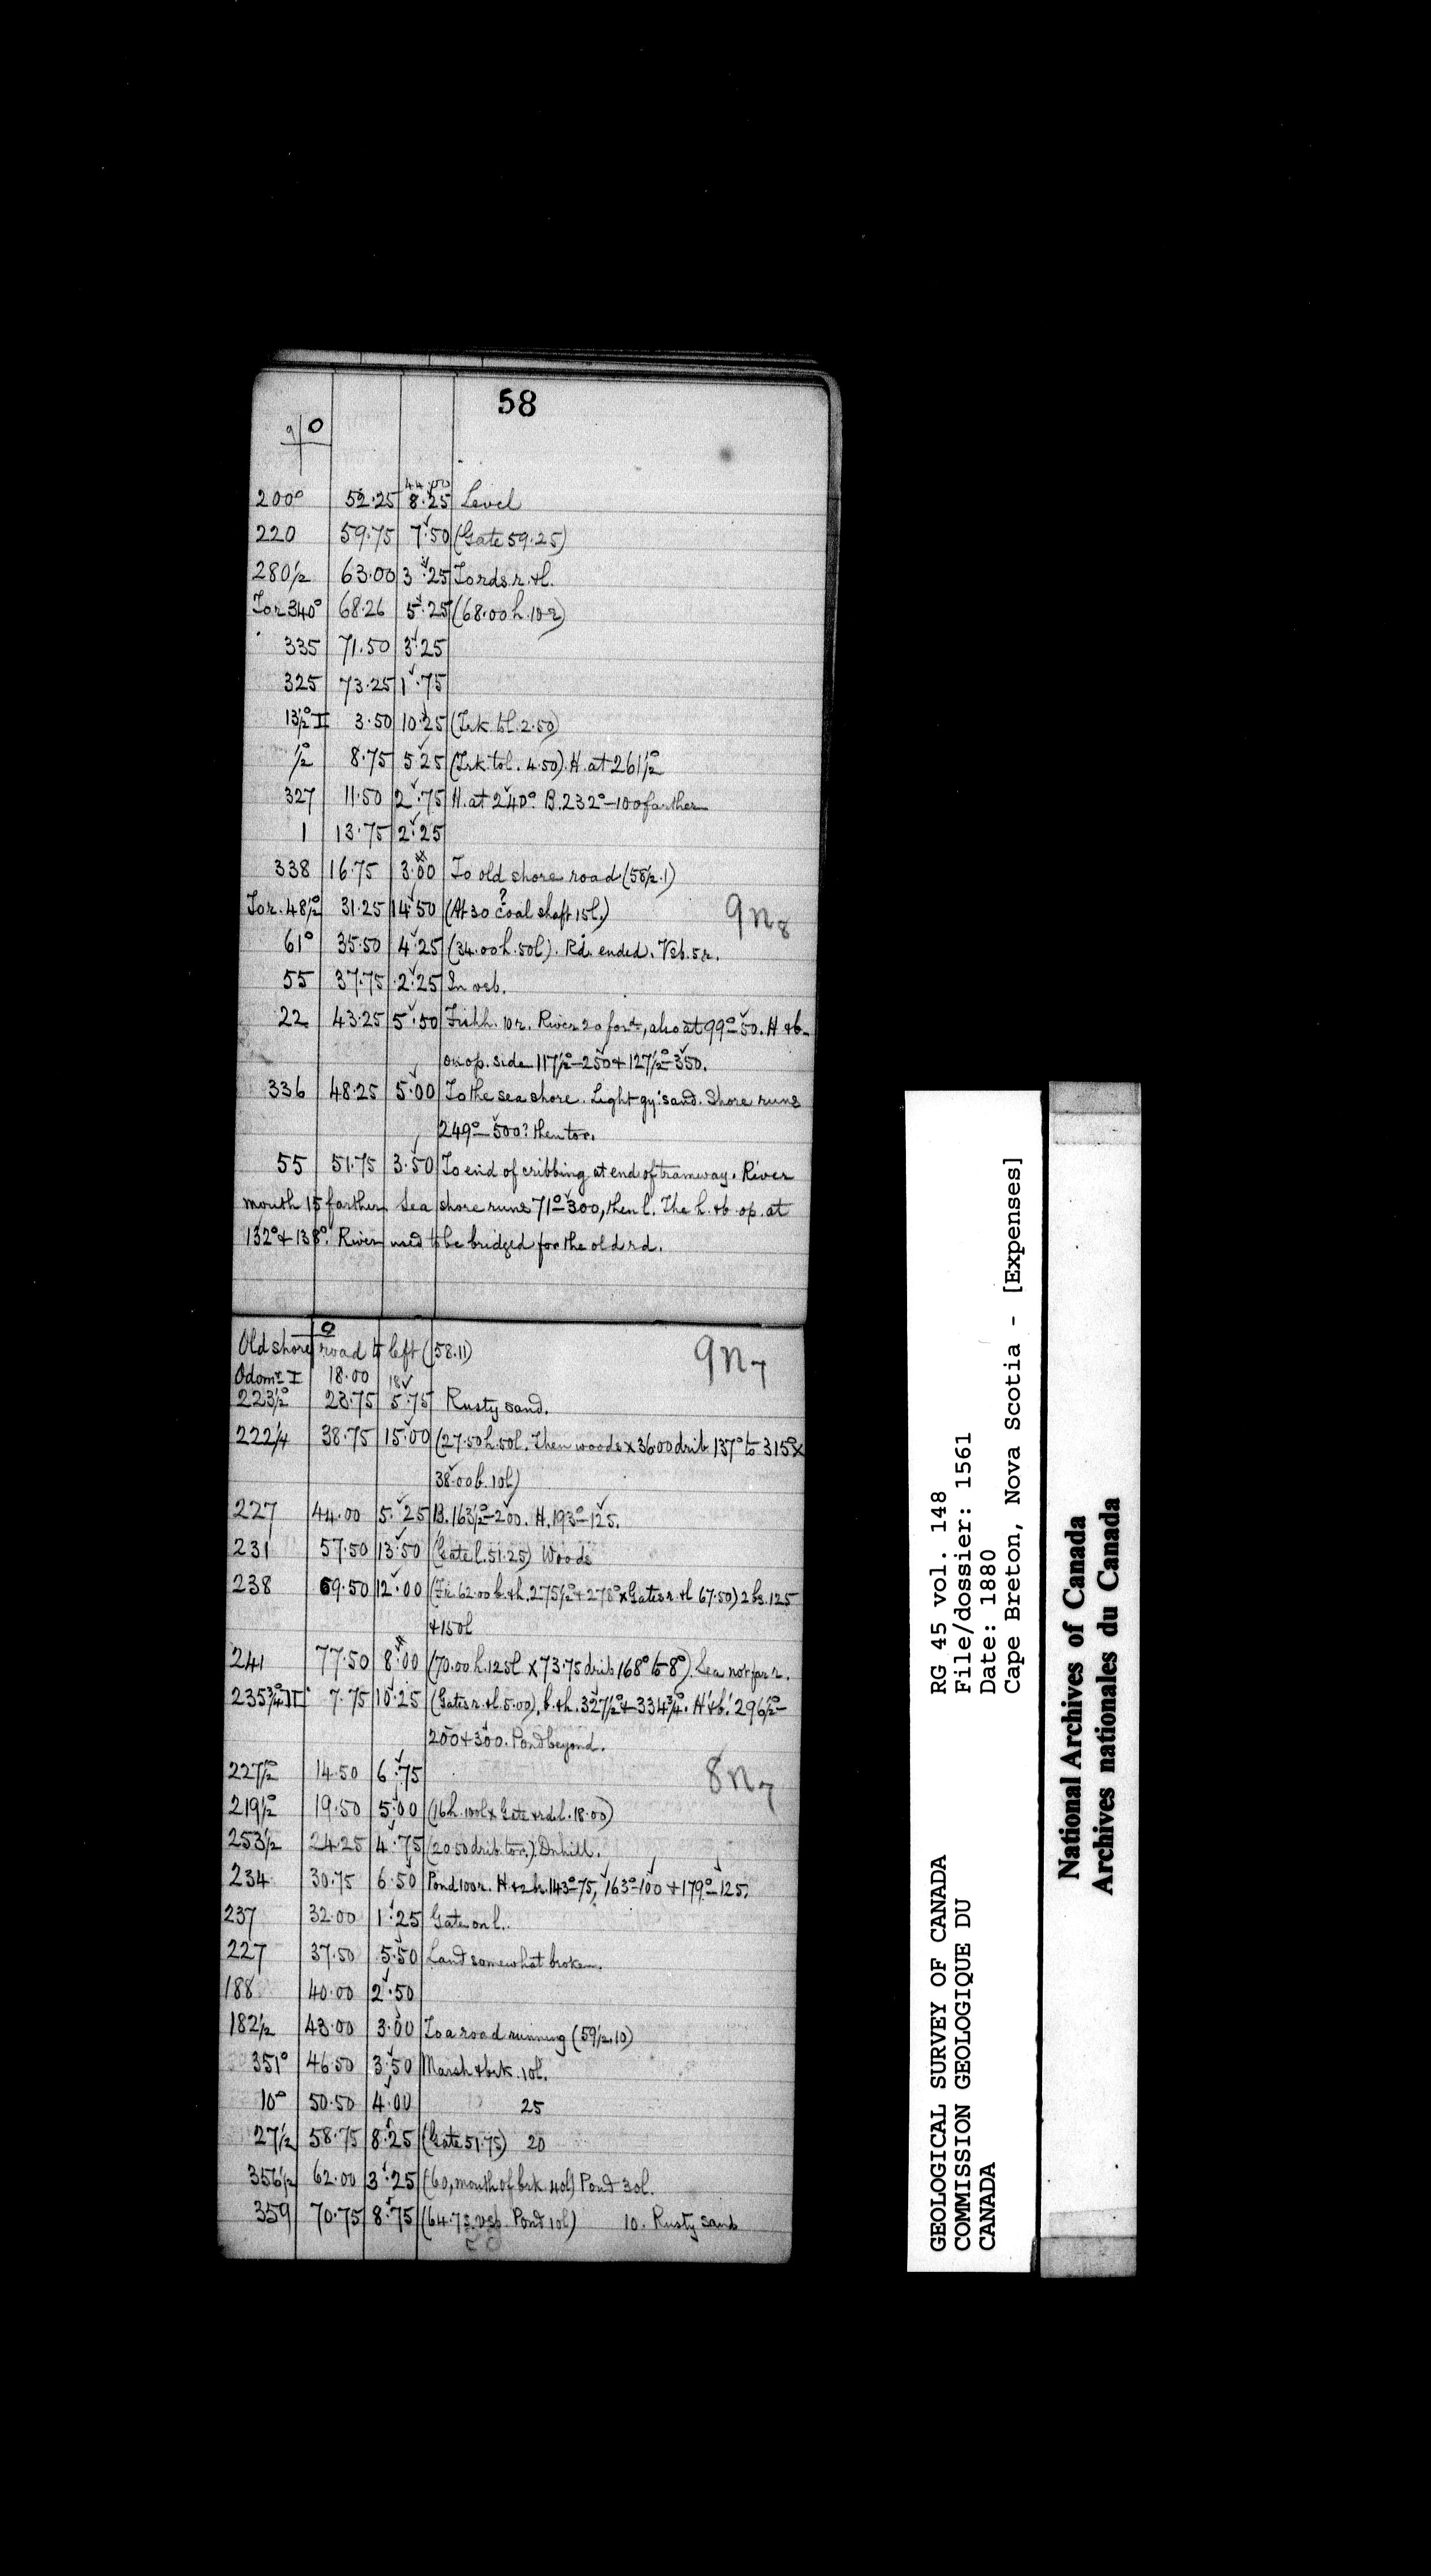 58
9 | 0
44.00
200° 52.25 8.25 Level
220 59.75 7.50 (Gate 59.25)
280½ 63.00 3.25 To rds. r. & l.
To r. 340° 68.26 5.25 (68.00 h. 10 r)
335 71.50 3.25
325 73.25 1.75
13½° II 3.50 10.25 (Trk. to l. 2.50)
½° 8.75 5.25 (Trk. to l. 4.50). H. at 261½°
327 11.50 2.75 H. at 240°. B. 232°–100 farther
1 13.75 2.25
338 16.75 3.00 To old shore road (58½.1)
To r. 48½° 31.25 14.50 (At 30 ? coal shaft 15 l.)
9n8
61° 35.50 4.25 (34.00 h. 50 l). Rd. ended. Vsb. 5 r.
55 37.75 2.25 In vsb.
22 43.25 5.50 Fish h. 10 r. River 20 ford, also at 99°–50. H & b.
on op. side 117½°–250 & 127½°–350.
336 48.25 5.00 To the sea shore. Light gy. sand. Shore runs
249°–500? then to r.
55 51.75 3.50 To end of cribbing at end of tramway. River
mouth 15 farther. Sea shore runs 71°–300, then l. The h. & b. op. at
132° & 138°. River used to be bridged for the old rd.
0
Old shore road to left (58.11)
9n7
Odomr. I 18.00 18
223½° 23.75 5.75 Rusty sand.
222¼ 38.75 15.00 (27.50 h. 50 l. Then woods x 36.00 drib 137° to 315° x
38.00 b. 10 l)
227 44.00 5.25 B. 163½°–200. H. 193°–125.
231 57.50 13.50 (Gate l. 51.25) Woods
238 69.50 12.00 (Fr. 62.00 b. & h. 275½° & 278° x Gates r. & l 67.50) 2 bs. 125
& 150 l
241 77.50 8.00 (70.00 h. 125 l x 73.75 drib 168° to 8°). Sea not far r.
235¾° II 7.75 10.25 (Gates r. & l. 5.00), b. & h. 327½° & 334¾°. H & b. 296½°–
200 & 300. Pond beyond.
227½° 14.50 6.75
8n7
219½° 19.50 5.00 (16 h. 100 l x Gate & rd. l. 18.00)
253½ 24.25 4.75 (20.50 drib to r.). Dnhill.
234 30.75 6.50 Pond 100 r. H. & 2 b. 143°–75, 163°–100 & 179°–125.
237 32.00 1.25 Gate on l.
227 37.50 5.50 Land somewhat broken.
188 40.00 2.50
182½ 43.00 3.00 To a road running (59½.10)
351° 46.50 3.50 Marsh & brk. 10 l.
10° 50.50 4.00 25
27½ 58.75 8.25 (Gate 51.75) 20
356½ 62.00 3.25 (60, mouth of brk. 40 l) Pond 30 l.
359 70.75 8.75 (64.75 vsb. Pond 10 l) 10. Rusty sand
GEOLOGICAL SURVEY OF CANADA
COMMISSION GEOLOGIQUE DU
CANADA
RG 45 vol. 148
File/dossier: 1561
Date: 1880
Cape Breton, Nova Scotia - [Expenses]
National Archives of Canada
Archives nationales du Canada